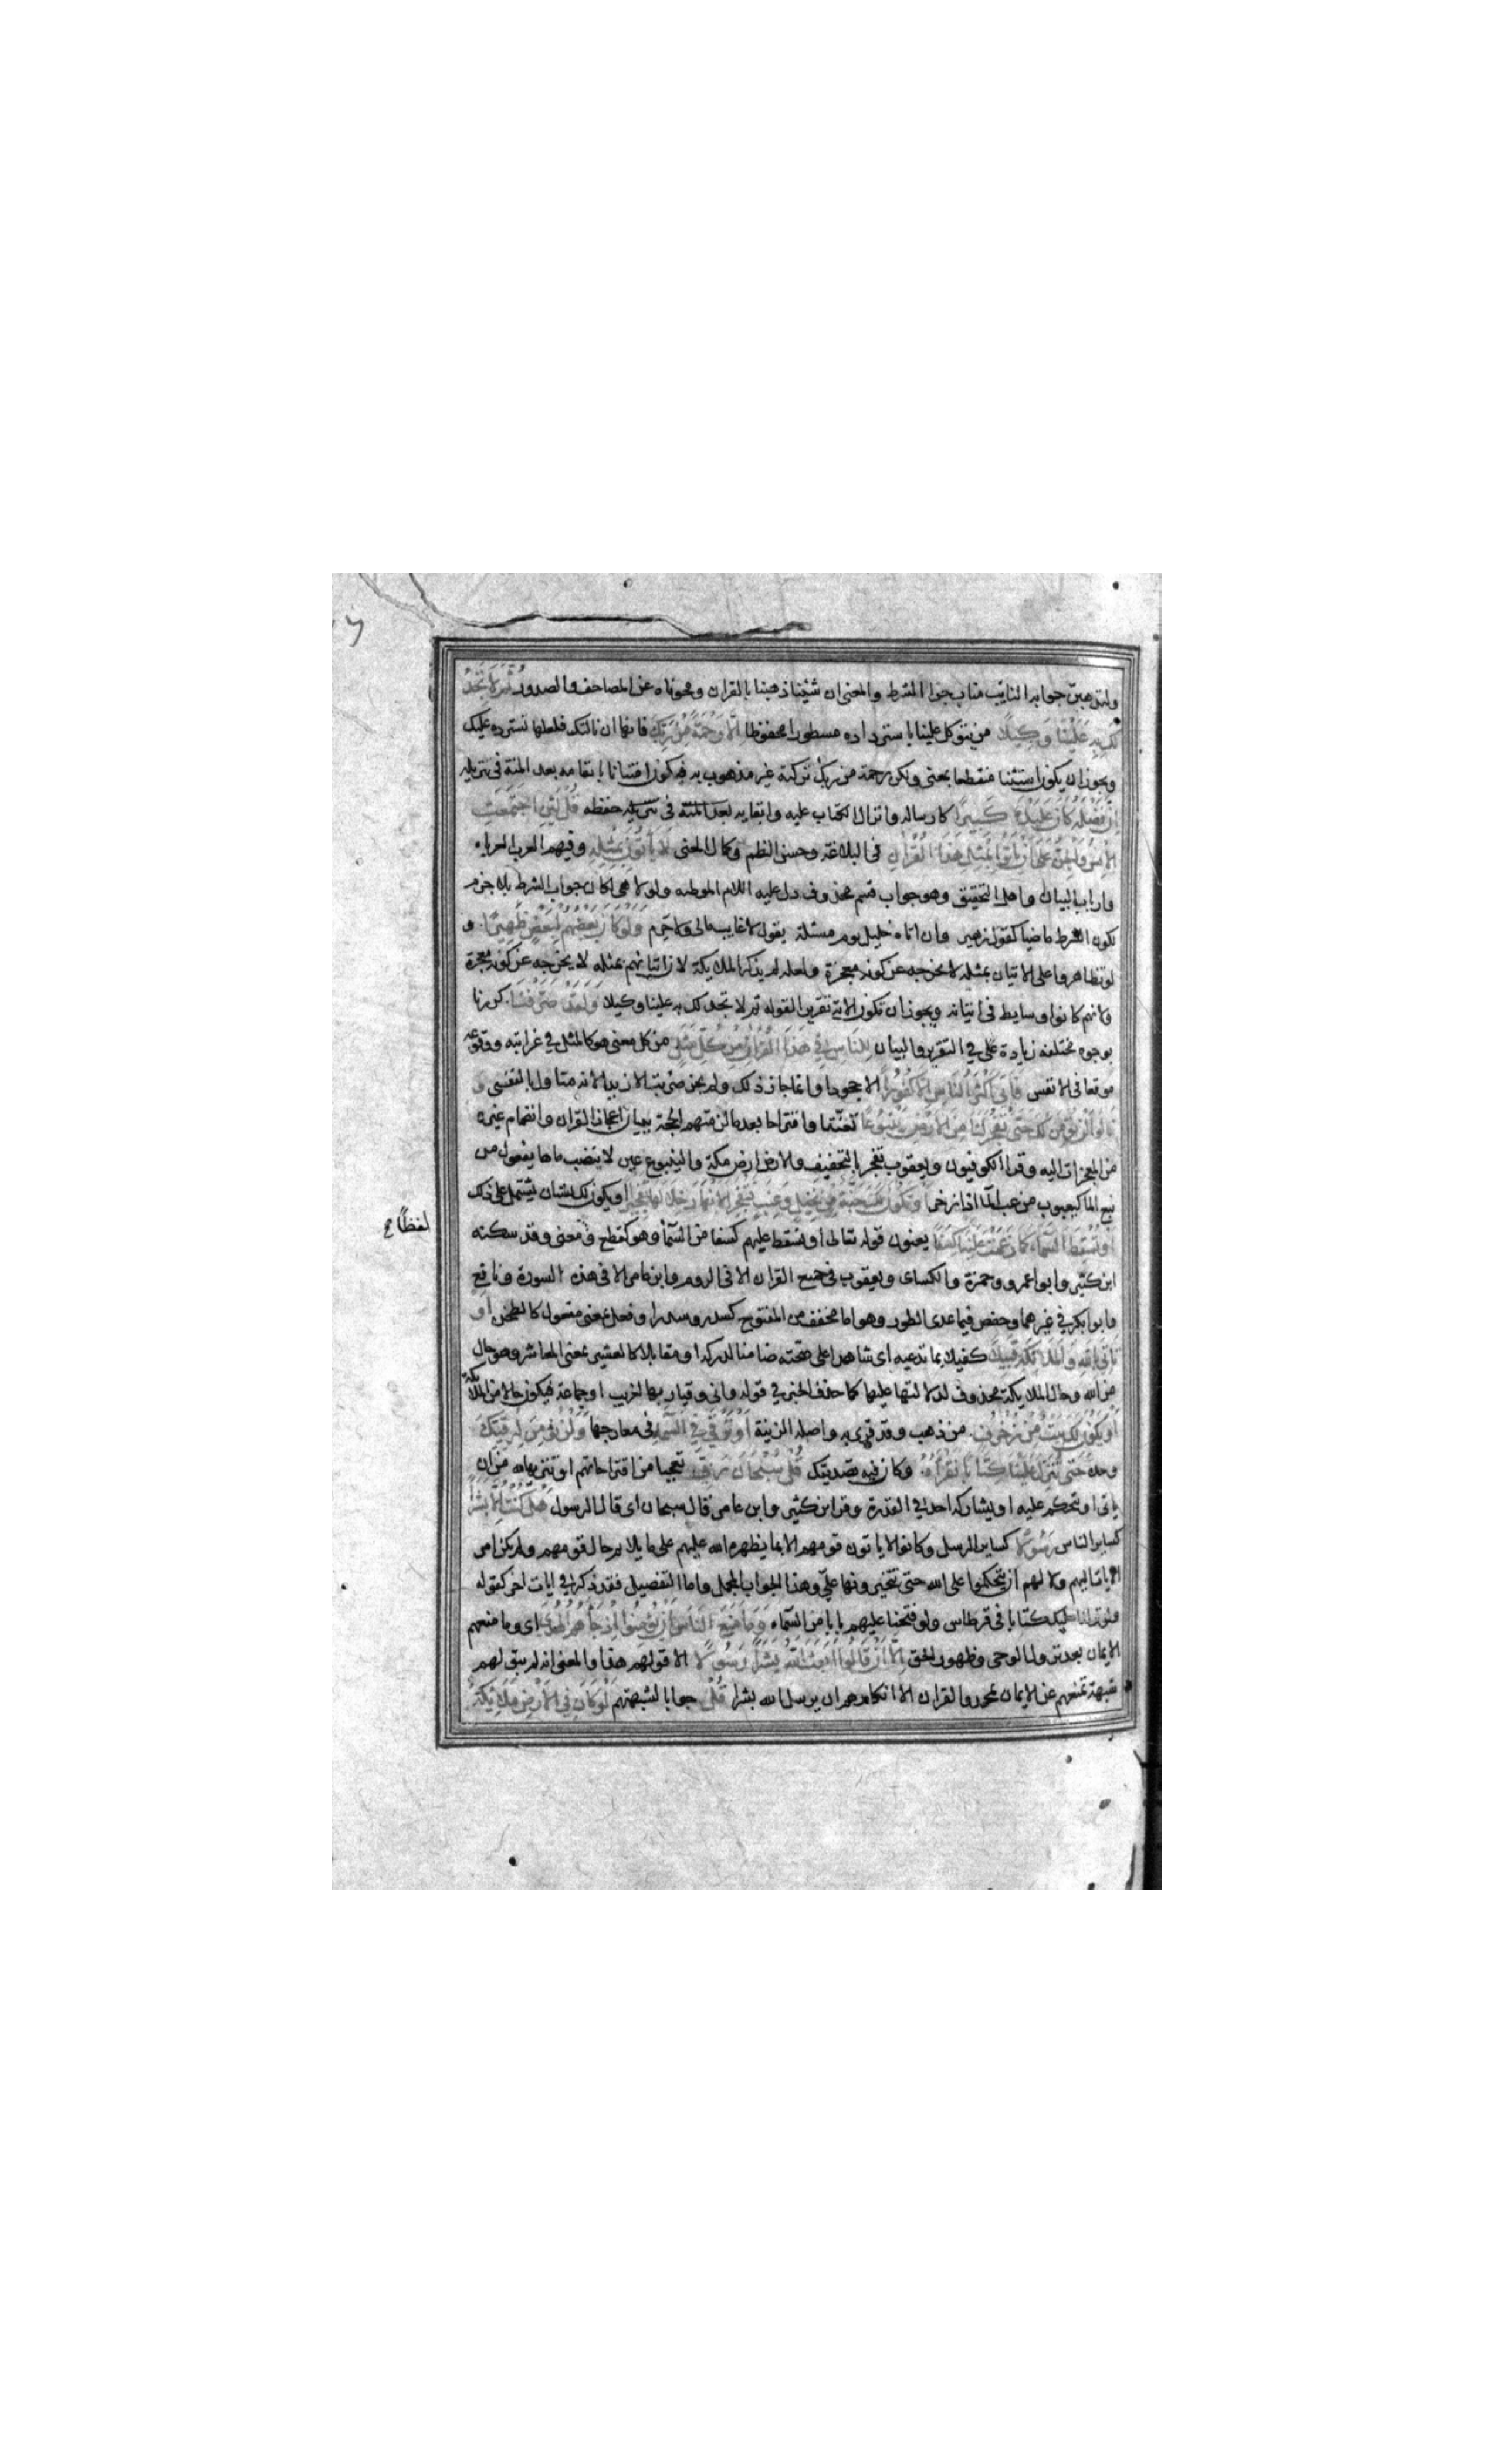 ولنذهبن جوابه النايب مناب جزا الشرط والمعنى ان شئنا ذهبنا بالقران ومحوناه عن المصاحف والصدور ثُمَّ لَا تَجِدُ
لَكَ بِهِ عَلَيْنَا وَكِيلًا من يتوكل علينا باسترداده مسطورا محفوظا اِلَّا رَحْمَةً مِنْ رَبِّكَ فانها ان نالتك فلعلها تسترده عليك
ويجوز ان يكون استثنا منقطعا بمعنى ولكن رحمة من ربك تركته غير مذهوب به فيكون امتنانا بابقائه بعد المنة في تنزيله
اِنَّ فَضْلَهُ كَانَ عَلَيْكَ كَبِيرًا كارساله وانزال الكتاب عليه وابقايه بعد المنة في تنزيله حفظه قُلْ لَئِنِ اجْتَمَعَتِ
الْاِنْسُ وَالْجِنُّ عَلَى اَنْ يَاْتُوا بِمِثْلِ هَذَا الْقُرْاٰنِ في البلاغة وحسن النظم وكمال المعنى لَا يَاْتُونَ بِمِثْلِهِ وفيهم العرب العرباء
وارباب البيان واهل التحقيق وهو جواب قسم محذوف دل عليه اللام الموطئه ولولا هي لكان جواب الشرط بلا جزم
لكون الشرط ماضيا كقول زهير وان اتاه خليل يوم مسئلة يقول لا غايب مالي ولا حرم وَلَوْ كَانَ بَعْضُهُمْ لِبَعْضٍ ظَهِيرًا و
لو تظاهروا على الاتيان بمثله لا يخرجه عن كونه معجزة ولعله لم يذكر الملايكة لان اتيانهم بمثله لا يخرجه عن كونه معجزة
ولانهم كانوا وسايط في اتيانه ويجوز ان تكون الاية تقريرا لقوله ثم لا تجد لك به علينا وكيلا وَلَقَدْ صَرَّفْنَا كررنا
بوجوه مختلفه زيادة على في التقرير والبيان لِلنَّاسِ فِي هَذَا الْقُرْاٰنِ مِنْ كُلِّ مَثَلٍ من كل معنى هو كالمثل في غرابته ووقوعه
موقعا في الانفس فَاَبَى اَكْثَرُ النَّاسِ اِلَّا كُفُورًا الا جحودا وانما جاز ذلك ولم يجز ضربت الا زيدا لانه متاول بالنفي و
قَالُوا لَنْ نُؤْمِنَ لَكَ حَتَّى تَفْجُرَ لَنَا مِنَ الْاَرْضِ يَنْبُوعًا تعنتا واقتراحا بعد ما لزمتهم الحجة ببيان اعجاز القران وانضمام غيره
من المعجزات اليه وقرا الكوفيون ويعقوب تفجر بالتخفيف والارض ارض مكة والينبوع عين لا ينضب ماها يفعول من
نبع الما كيعبوب من عب الما اذا زخر اَوْ تَكُونَ لَكَ جَنَّةٌ مِنْ نَخِيلٍ وَعِنَبٍ فَتُفَجِّرَ الْاَنْهَارَ خِلَالَهَا تَفْجِيرًا او يكون لك بستان يشتمل على ذلك
اَوْ تُسْقِطَ السَّمَاءَ كَمَا زَعَمْتَ عَلَيْنَا كِسَفًا يعنون قوله تعالى او نسقط عليهم كسفا من السمآ وهو كقطع ومعنى وقد سكنه
لفظًا صح
ابن كثير وابو عمرو وحمزة والكساى ويعقوب في جميع القران الا في الروم وابن عامر الا في هذه السورة ونافع
وابو بكر في غيرهما وحفص فيما عدى الطور وهو اما مخفف من المفتوح كسدر وسدر او فعل بمعنى مفعول كالطحن اَوْ
تَاْتِيَ بِاللَّهِ وَالْمَلَائِكَةِ قَبِيلًا كفيلا بما تدعيه اى شاهدا على صحته ضامنا لدركه او مقابلا كالعشير بمعنى المعاشر وهو حال
من الله وحال الملايكة محذوف لدلالتها عليها كما حذف الخبر في قوله واني وقيار بها لغريب او جماعة فيكون حالا من الملايكة
اَوْ يَكُونَ لَكَ بَيْتٌ مِنْ زُخْرُفٍ من ذهب وقد قرى به واصله الزينة اَوْ تَرْقَى فِي السَّمَاءِ في معارجها وَلَنْ نُؤْمِنَ لِرُقِيِّكَ
وحده حَتَّى تُنَزِّلَ عَلَيْنَا كِتَابًا نَقْرَؤُهُ وكان فيه تصديقك قُلْ سُبْحَانَ رَبِّي تعجبا من اقتراحاتهم او تنزيها لله من ان
ياتى او يتحكم عليه او يشاركه احد في القدرة وقرا ابن كثير وابن عامر قال سبحان اى قال الرسول هَلْ كُنْتُ اِلَّا بَشَرًا
كساير الناس رَسُولًا كساير الرسل وكانوا لا ياتون قومهم الا بما يظهره الله عليهم على ما يلايم حال قومهم ولم يكن امر
الايات اليهم ولا لهم ان يتحكموا على الله حتى تتخيرونها علي وهذا الجواب المجمل واما التفصيل فقد ذكر في ايات اخر كقوله
ولو نزلنا عليك كتابا في قرطاس ولو فتحنا عليهم بابا من السماء وَمَا مَنَعَ النَّاسَ اَنْ يُؤْمِنُوا اِذْ جَاءَهُمُ الْهُدَى اى وما منعهم
الايمان بعد نزول الوحى وظهور الحق اِلَّا اَنْ قَالُوا اَبَعَثَ اللَّهُ بَشَرًا رَسُولًا الا قولهم هذا والمعنى انه لم يبق لهم
شبهة تمنعهم عن الايمان بمحمد والقران الا انكارهم ان يرسل الله بشرا قُلْ جوابا لشبهتهم لَوْ كَانَ فِي الْاَرْضِ مَلَائِكَةٌ